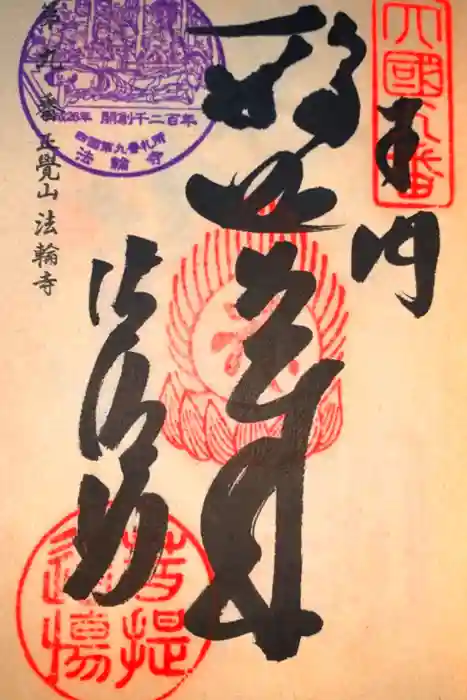 四國九番
奉納
法輪寺
菩提
道場
平成26年 開創千二百年
四国第九番札所
法輪寺
第九番 正覺山 法輪寺